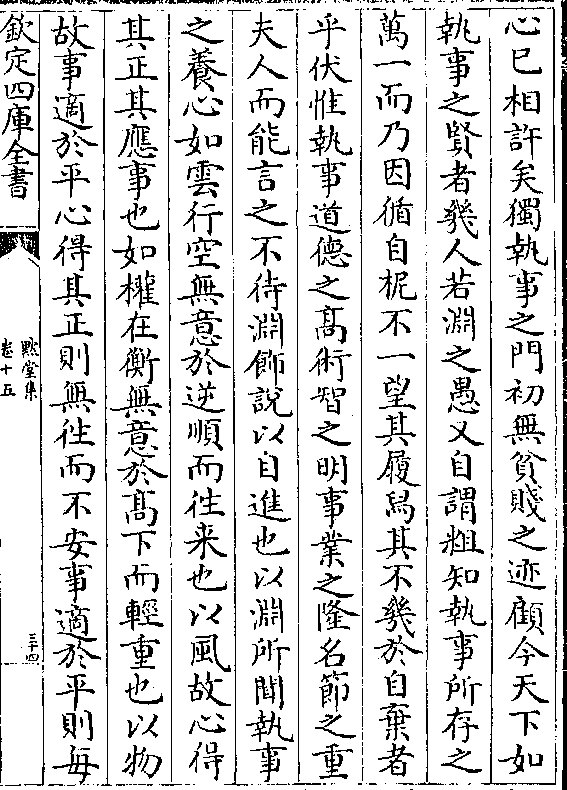 心已相許矣獨執事之門初無貧賤之迹顧今天下如
執事之賢者㡬人若淵之愚又自謂粗知執事所存之
萬一而乃因循自柅不一望其履舄其不㡬於自棄者
乎伏惟執事道德之髙術智之明事業之隆名節之重
夫人而能言之不待淵飾說以自進也以淵所聞執事
之養心如雲行空無意於逆順而徃来也以風故心得
其正其應事也如權在衡無意於髙下而輕重也以物
故事適於平心得其正則無徃而不安事適於平則每
欽定四庫全書
默堂集
卷十五
三十四